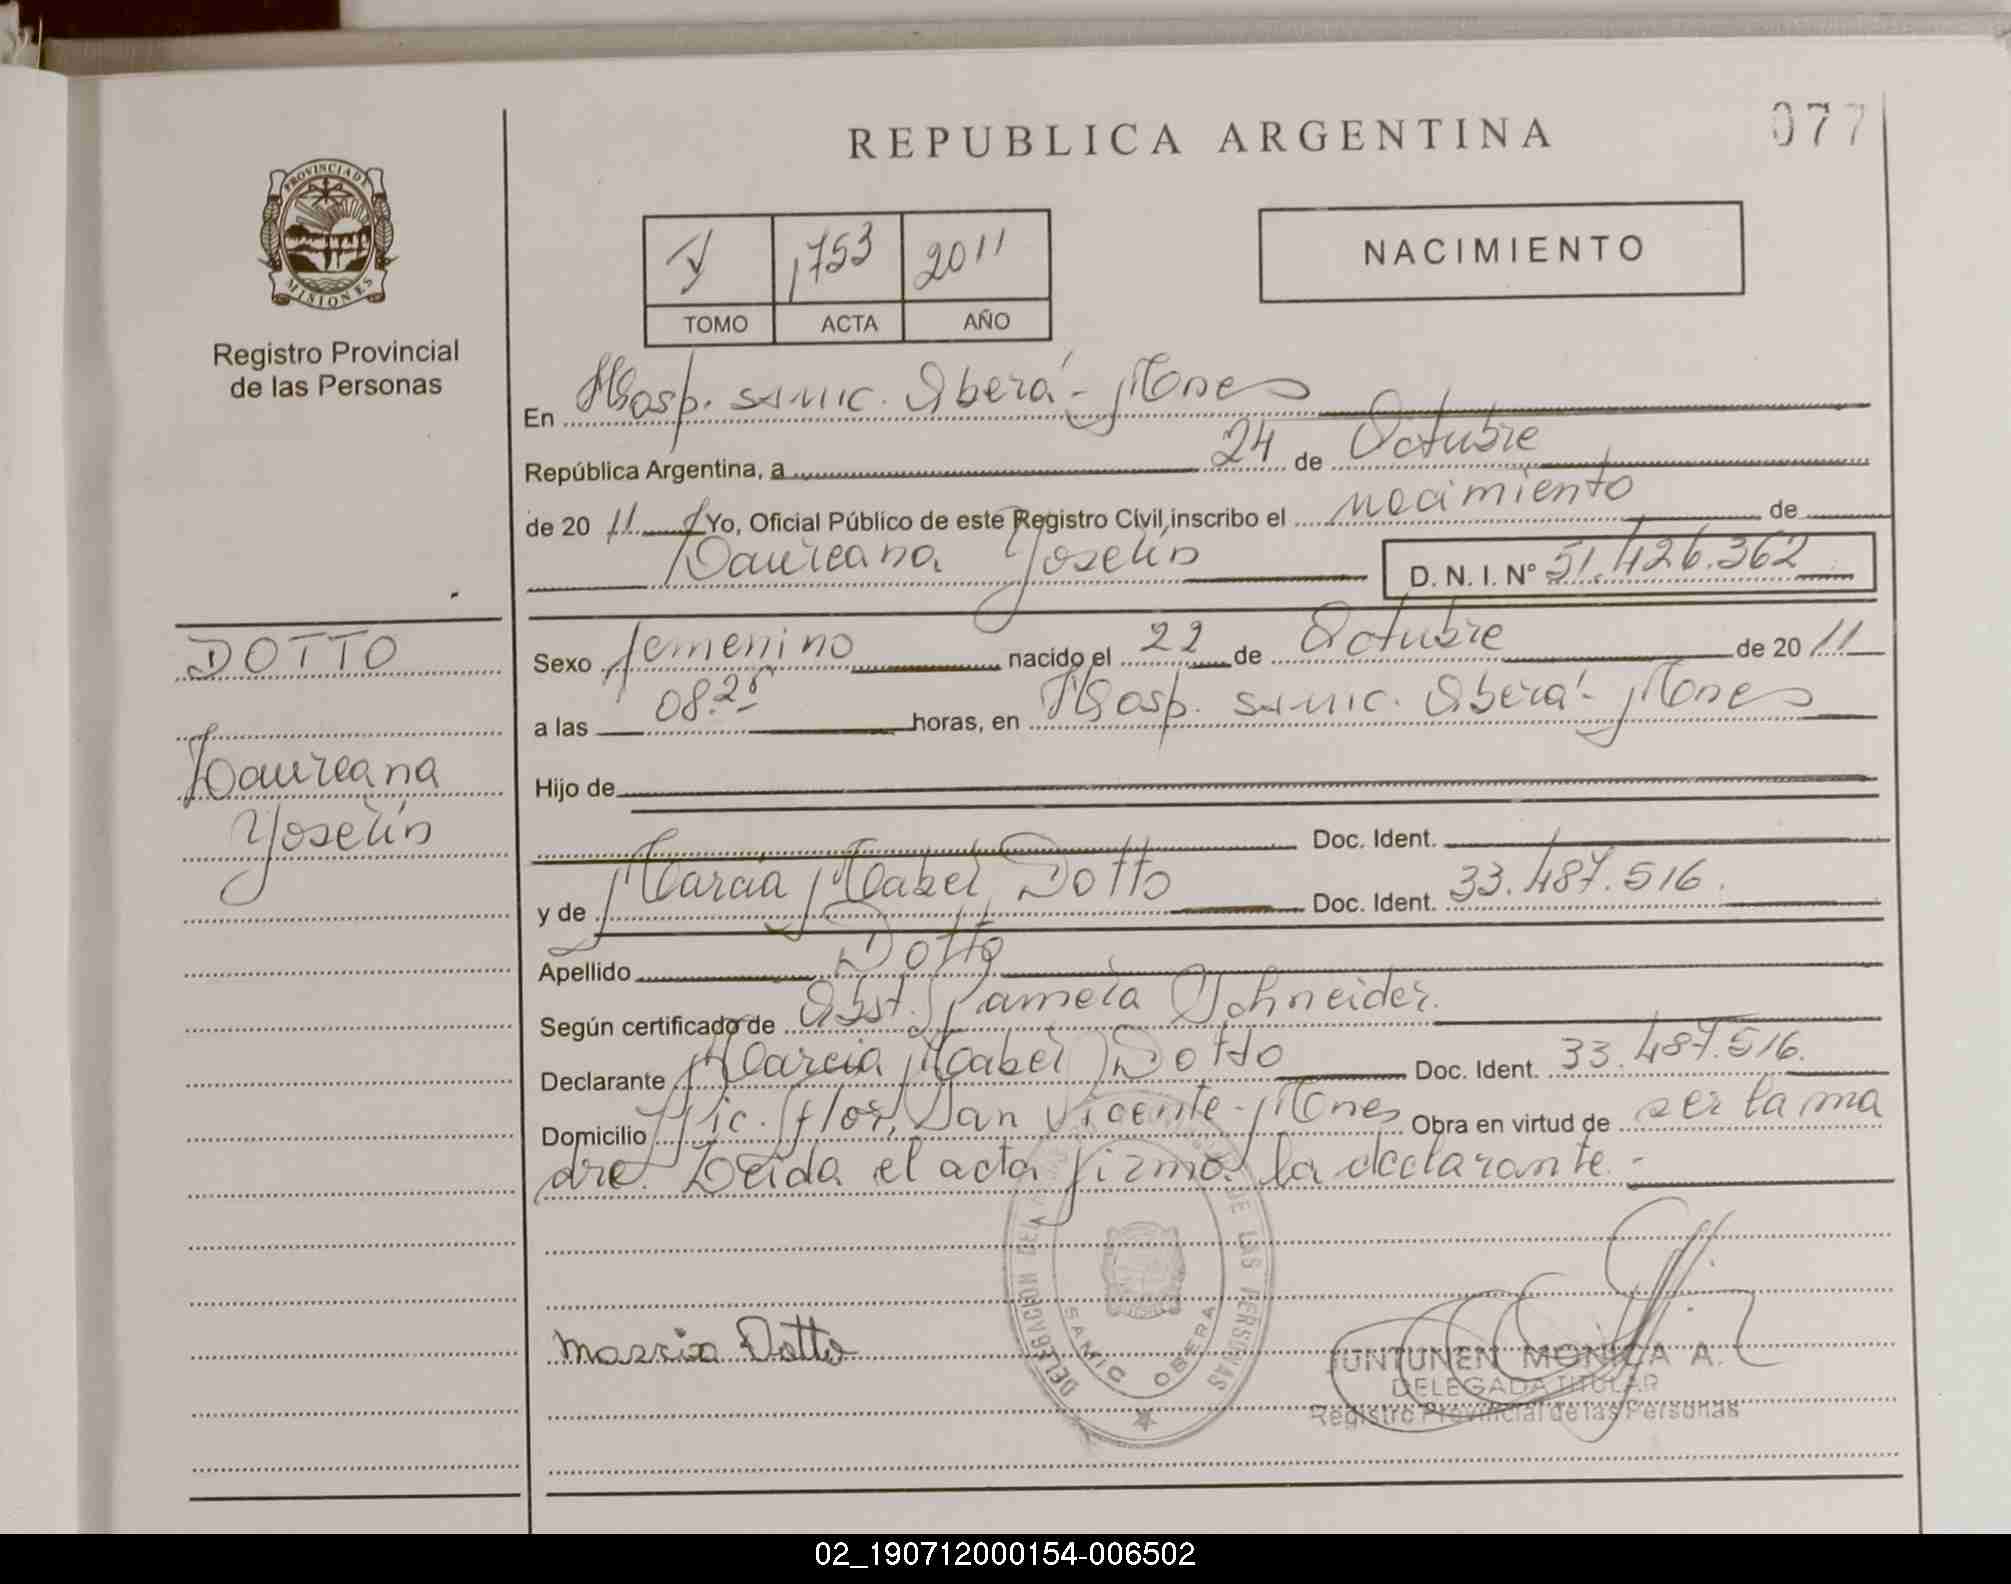 REPUBLICA ARGENTINA
077
PROVINCIA DE MISIONES
Registro Provincial
de las Personas
1753 2011
TOMO ACTA AÑO
NACIMIENTO
En Hosp. SAMIC. Oberá - Mones
República Argentina, a 24 de Octubre
de 20 11 Yo, Oficial Público de este Registro Civil, inscribo el nacimiento de
Laureana Yoselin D. N. I. Nº 51.426.362
DOTTO
Laureana
Yoselin
Sexo femenino nacido el 22 de Octubre de 20 11
a las 08.25 horas, en Hosp. SAMIC. Oberá - Mones
Hijo de
Doc. Ident.
y de Marcia Mabel Dotto Doc. Ident. 33.487.516.
Apellido Dotto
Según certificado de Obst. Pamela Schneider.
Declarante Marcia Mabel Dotto Doc. Ident. 33.487.516.
Domicilio Mic. flor, San Vicente - Mones Obra en virtud de ser la ma
dre. Leida el acta firma la declarante.-
DELEGACION DE LAS PERSONAS
SAMIC OBERA
marcia Dotto
JUNTUNEN MONICA A.
DELEGADA TITULAR
Registro Provincial de las Personas
02_190712000154-006502